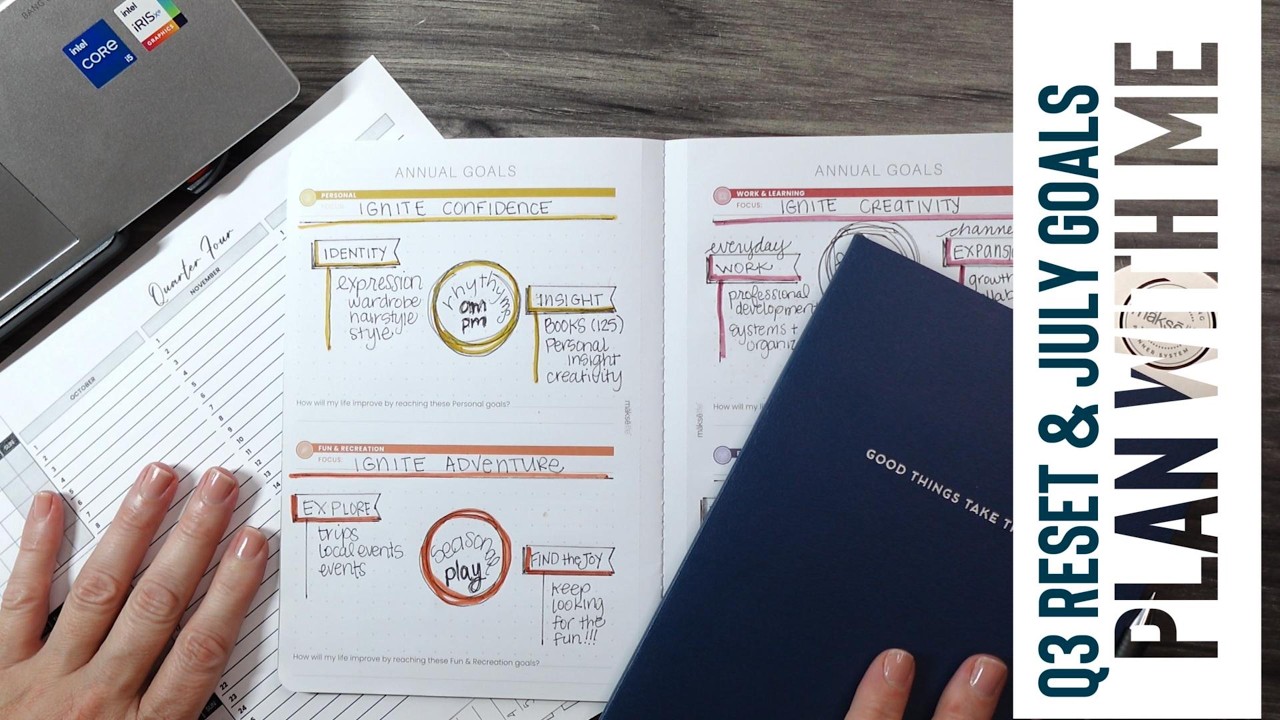 intel
CORE
i5
intel
iRIS xe
GRAPHICS
Quarter Four
OCTOBER
NOVEMBER
ANNUAL GOALS
PERSONAL
FOCUS:
IGNITE CONFIDENCE
IDENTITY
expression
wardrobe
hairstyle
style
rhythms
am
pm
INSIGHT
BOOKS (125)
Personal
insight
creativity
How will my life improve by reaching these Personal goals?
FUN & RECREATION
FOCUS:
IGNITE ADVENTURE
EXPLORE
trips
local events
events
seasons
play
FIND the JOY
keep
looking
for the
fun!!!
How will my life improve by reaching these Fun & Recreation goals?
ANNUAL GOALS
WORK & LEARNING
FOCUS:
IGNITE CREATIVITY
everyday
WORK
professional
development
systems +
How will my li
GOOD THINGS TAKE
Q3 RESET & JULY GOALS
PLAN WITH ME